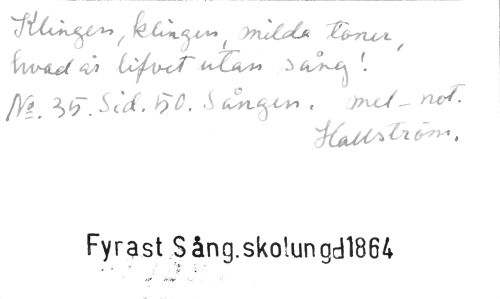 Klingen, klingen, milda toner,
hvad är lifvet utan sång!
No. 35. Sid. 50. Sången. mel-not.
Hallström.
Fyrast Sång.skolungd1864